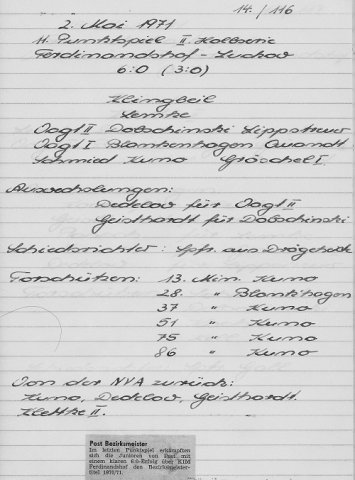 14./116
2. Mai 1971
11. Punktspiel II. Halbserie
Ferdinandshof - Luckow
6:0 (3:0)
Klingbeil
Lemke
Vogt II Dobschinski Lippstreu
Vogt I Blankenhagen Quandt
Schmied Kuno Gröschel I
Auswechslungen:
Dedelow für Vogt II
Geisthardt für Dobschinski
Schiedsrichter: Spfr. aus Drögeheide
Torschützen: 13. Min. Kuno
28. " Blank'hagen
37 " Kuno
51 " Kuno
75 " Kuno
86 " Kuno
Von der NVA zurück:
Kuno, Dedelow, Geisthardt.
Klettke II.
Post Bezirksmeister
Im letzten Punktspiel erkämpften
sich die Junioren von Post mit
einem klaren 6:0-Erfolg über
Ferdinandshof den Bezirksmeister-
titel 1970/71.